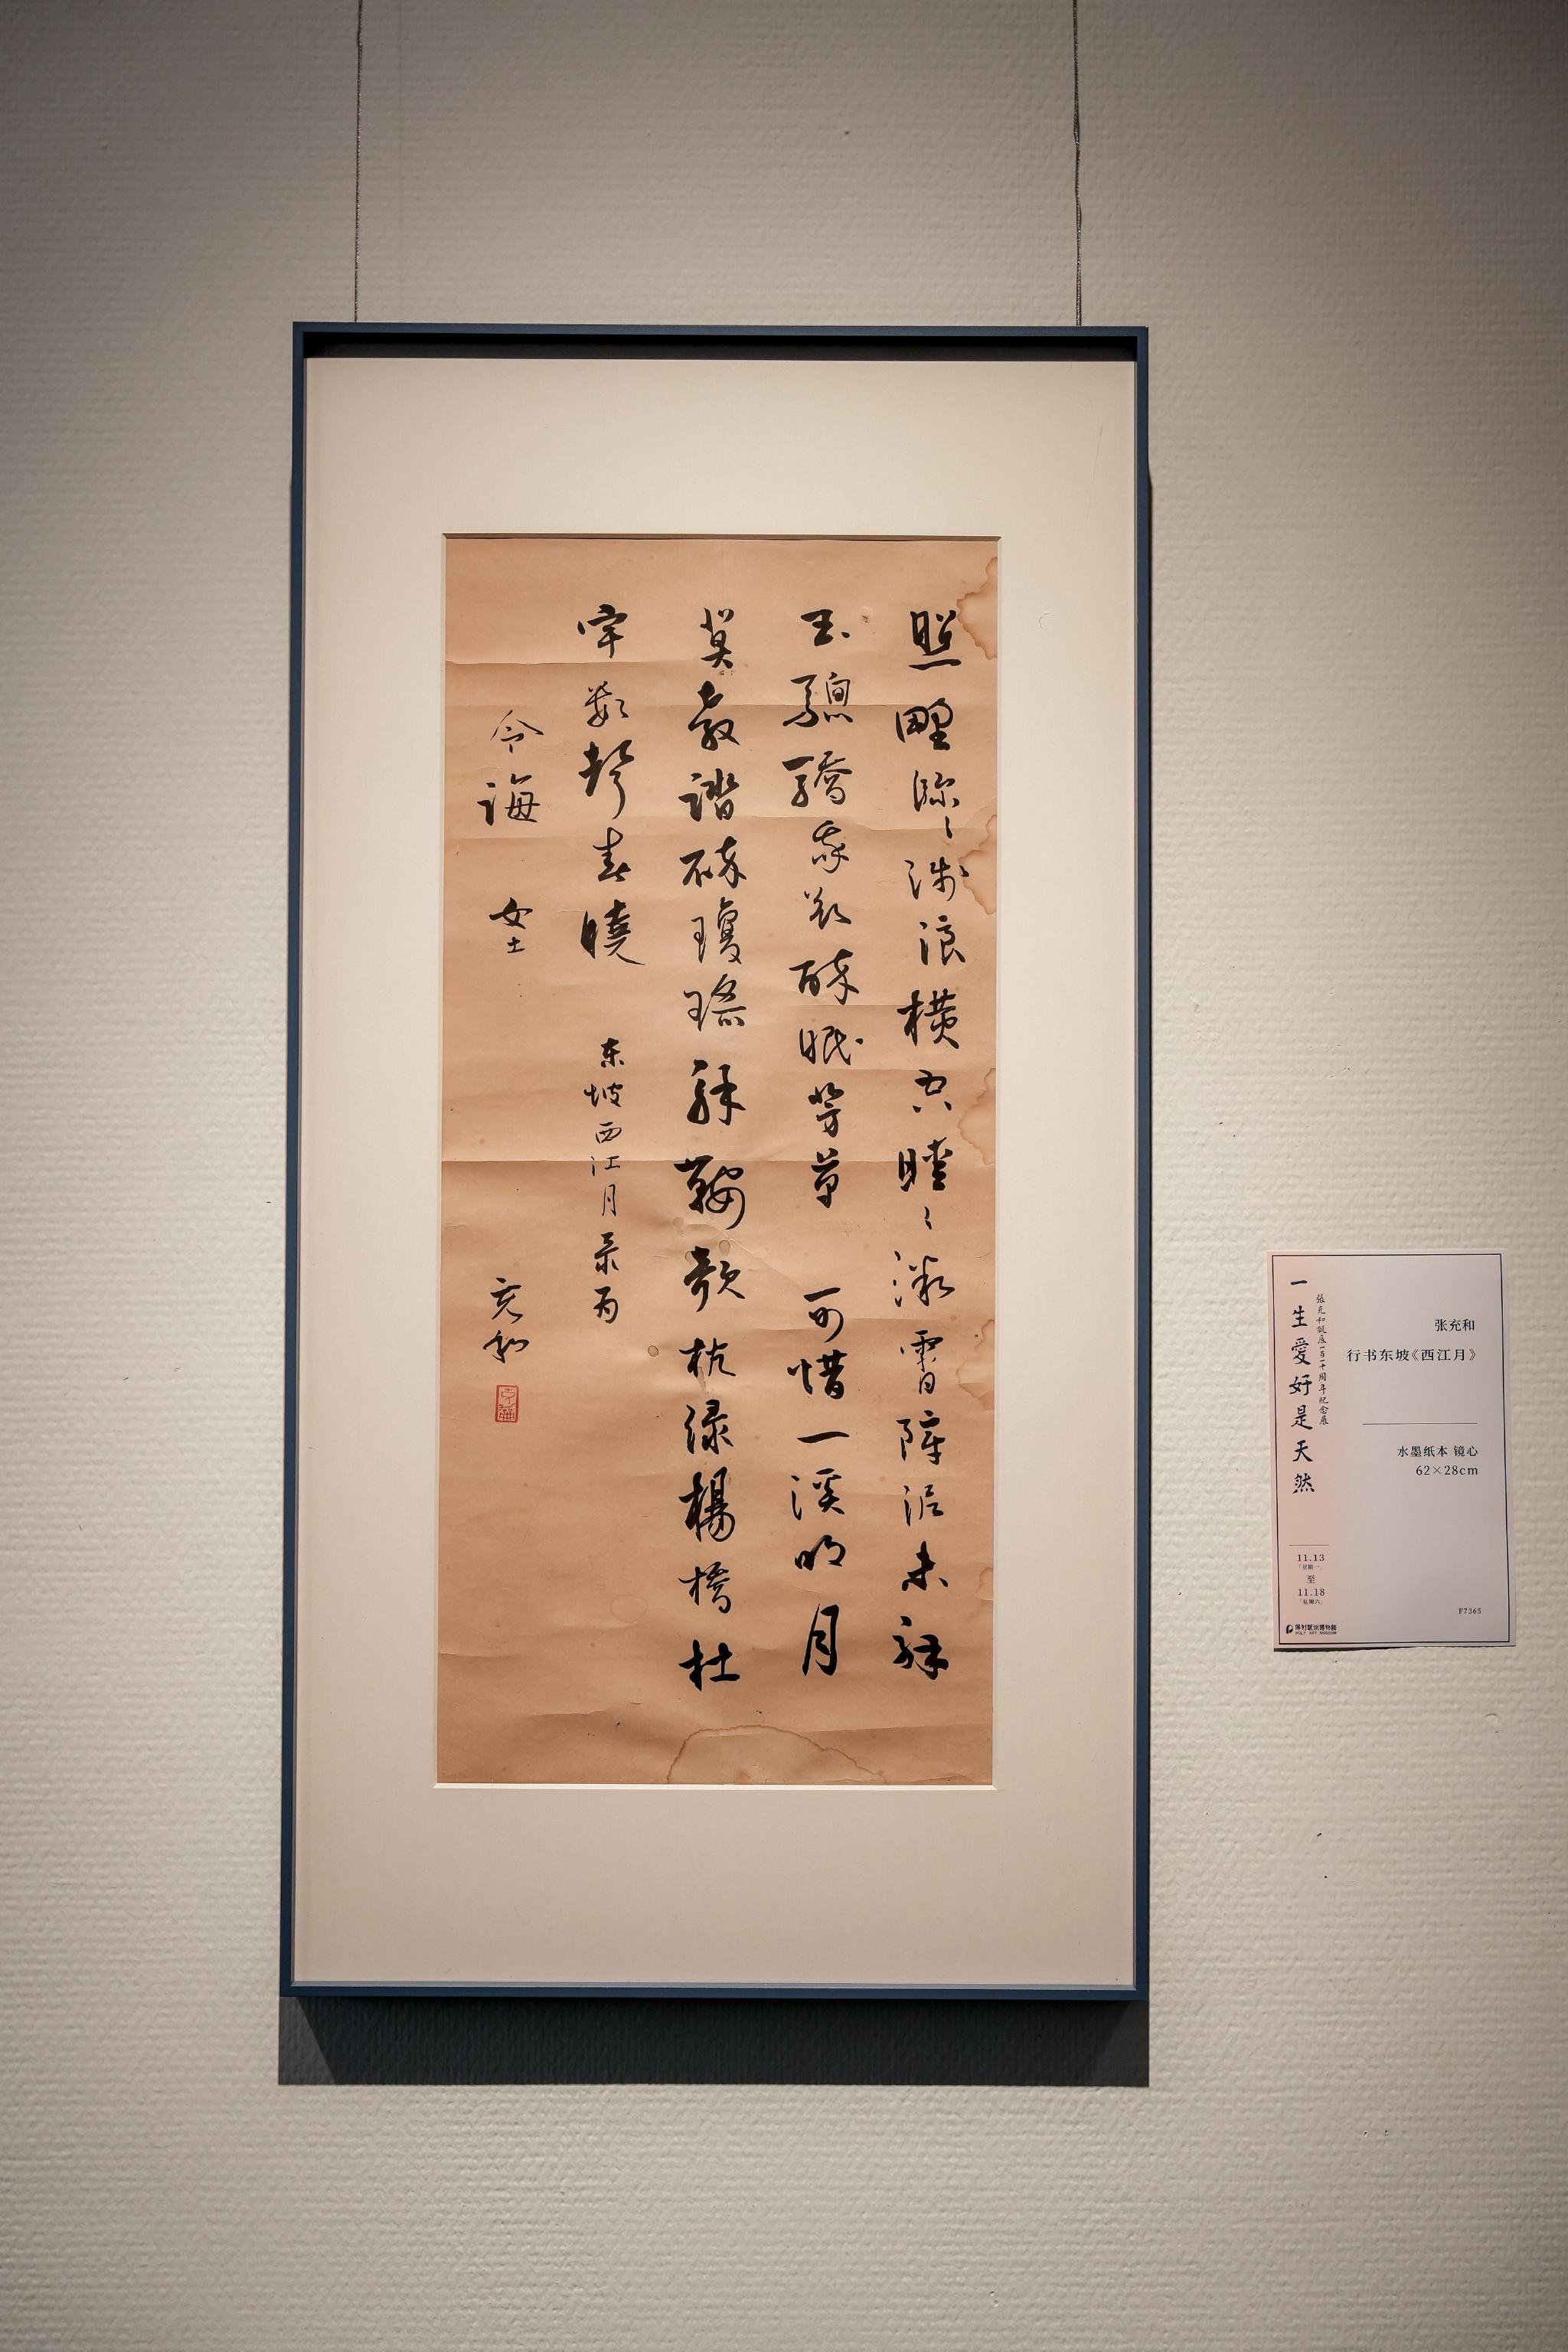 照野瀰〻淺浪橫空曖〻微霄障泥未解
玉驄驕我欲醉眠芳草 可惜一溪明月
莫教踏碎瓊瑤解鞍欹枕綠楊橋杜
宇數聲春曉 东坡西江月录为
令誨 女士 充和
张充和
行书东坡《西江月》
水墨纸本 镜心
62×28cm
F7365
張充和誕辰一百一十周年紀念展
一生愛好是天然
11.13
「星期一」
至
11.18
「星期六」
保利藝術博物館
POLY ART MUSEUM